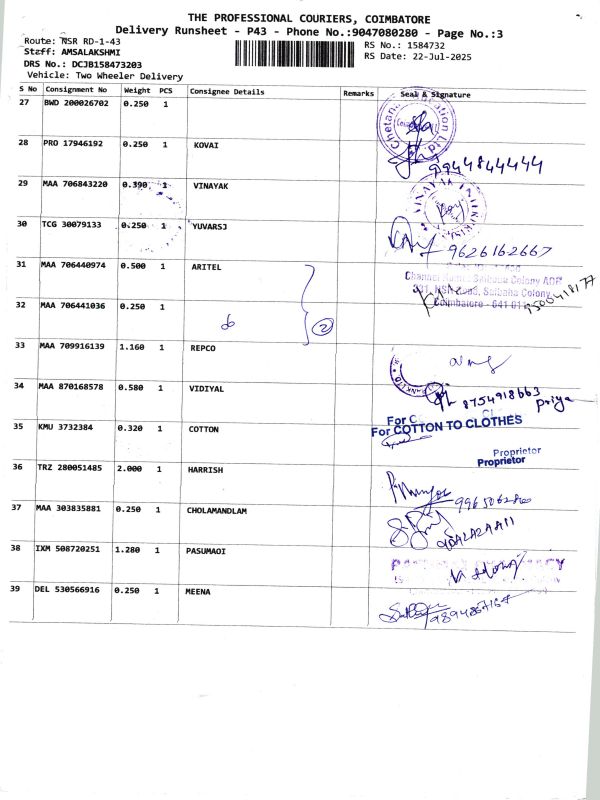 THE PROFESSIONAL COURIERS, COIMBATORE
Delivery Runsheet - P43 - Phone No.:9047080280 - Page No.:3
Route: NSR RD-1-43
RS No.: 1584732
Staff: AMSALAKSHMI
RS Date: 22-Jul-2025
DRS No.: DCJB158473203
Vehicle: Two Wheeler Delivery
S No Consignment No Weight PCS Consignee Details Remarks Seal & Signature
27 BWD 200026702 0.250 1
28 PRO 17946192 0.250 1 KOVAI
9944844444
29 MAA 706843220 0.390 1 VINAYAK
30 TCG 30079133 0.250 1 YUVARSJ
9626162667
31 MAA 706440974 0.500 1 ARITEL
Saibaba Colony ADR
331, NSR Road, Saibaba Colony
Coimbatore - 641 011
9500418177
32 MAA 706441036 0.250 1 do 2
33 MAA 709916139 1.160 1 REPCO
34 MAA 870168578 0.580 1 VIDIYAL
8754918663
priya
For COTTON TO CLOTHES
35 KMU 3732384 0.320 1 COTTON
Proprietor
Proprietor
36 TRZ 280051485 2.000 1 HARRISH
37 MAA 303835881 0.250 1 CHOLAMANDLAM
38 IXM 508720251 1.280 1 PASUMAOI
39 DEL 530566916 0.250 1 MEENA
9894867167